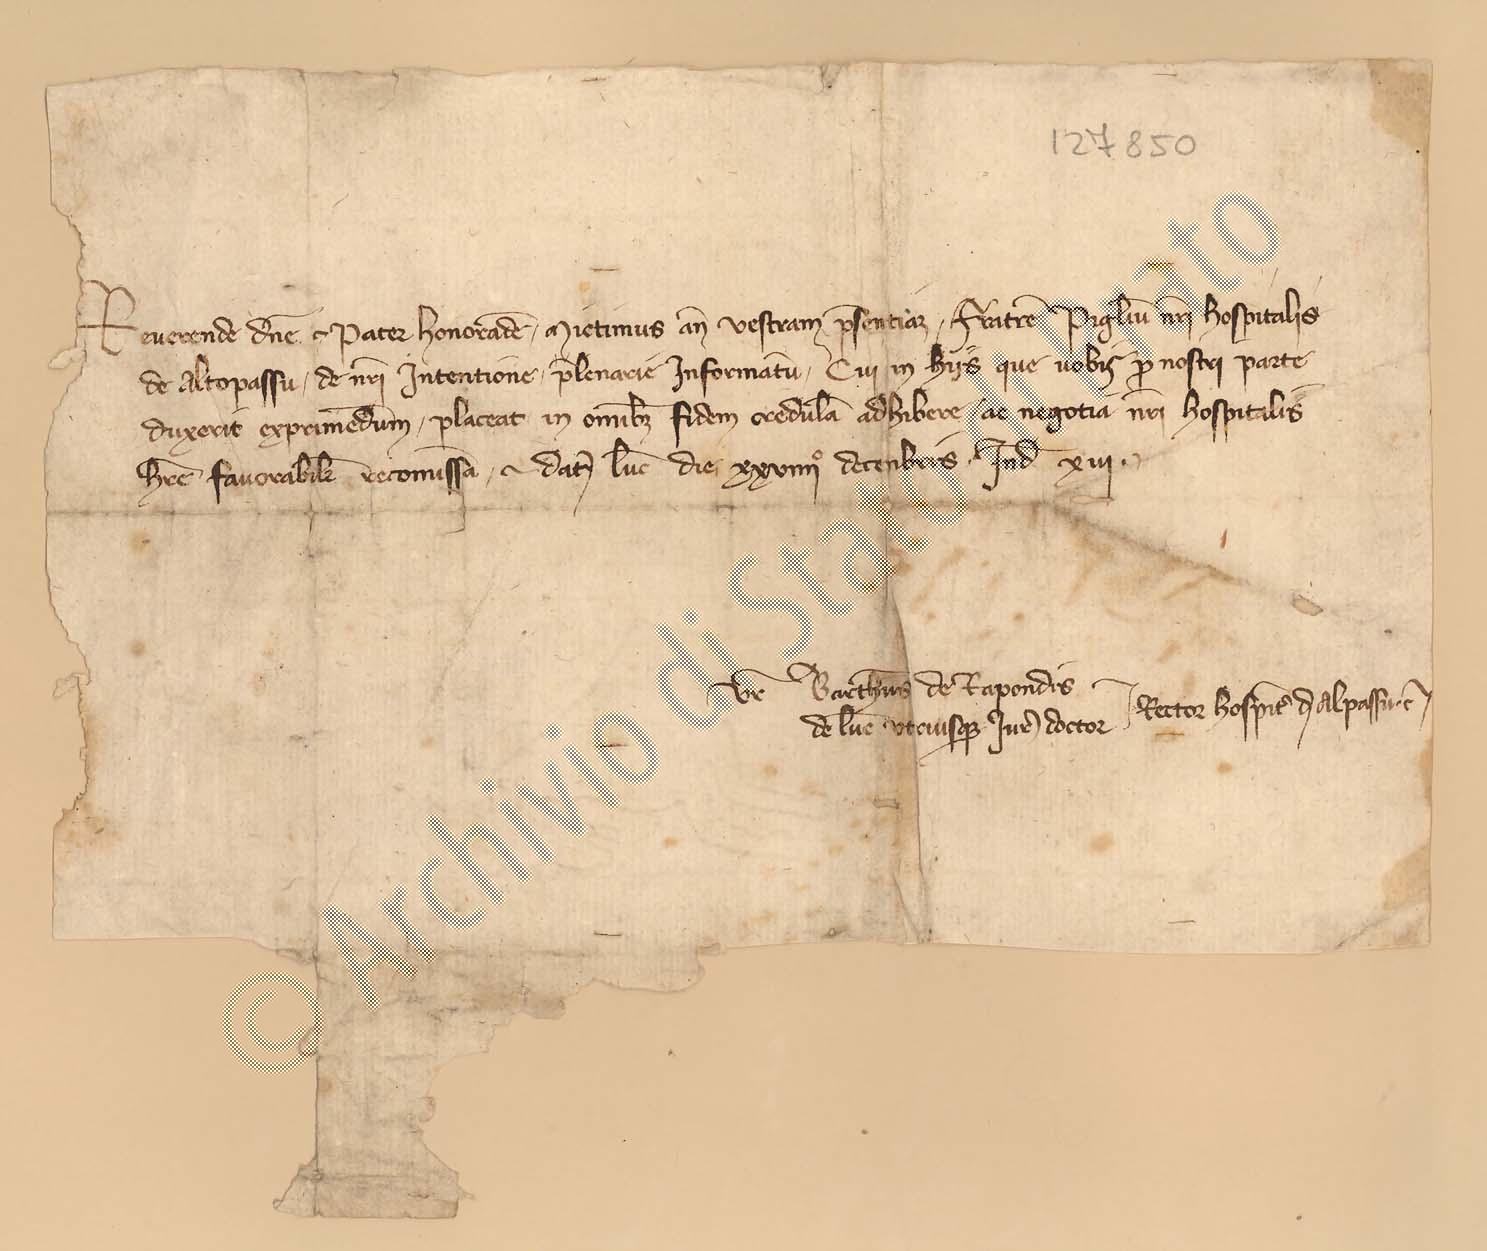 127850
Reverende dn̄e ⁊ Pater honorāde, Mictimus an̄ vestram p̄sentiaꝫ, Fratrē Pigliū nr̄i hospitalis
de Altopassu, de nr̄i Intentione, plenarie Informatū, Cui in hijs que vobis ꝓ nostri parte
duxerit exprimēdum, placeat in omibꝫ fidem credulā adhibere, ac negotia nr̄i hospitalis
hr̄e favorabilit᷑ recomissa, ⁊ dat̄ luc̄ die xxviiijº decenbris, Ind̄ xiij.
Vr̄ Barthus̄ de Rapondis
de luc̄ utriusqꝫ Jur̄ doctor
Rector hospit̄ d̄ Alpassu ⁊c̄
© Archivio di Stato di Prato